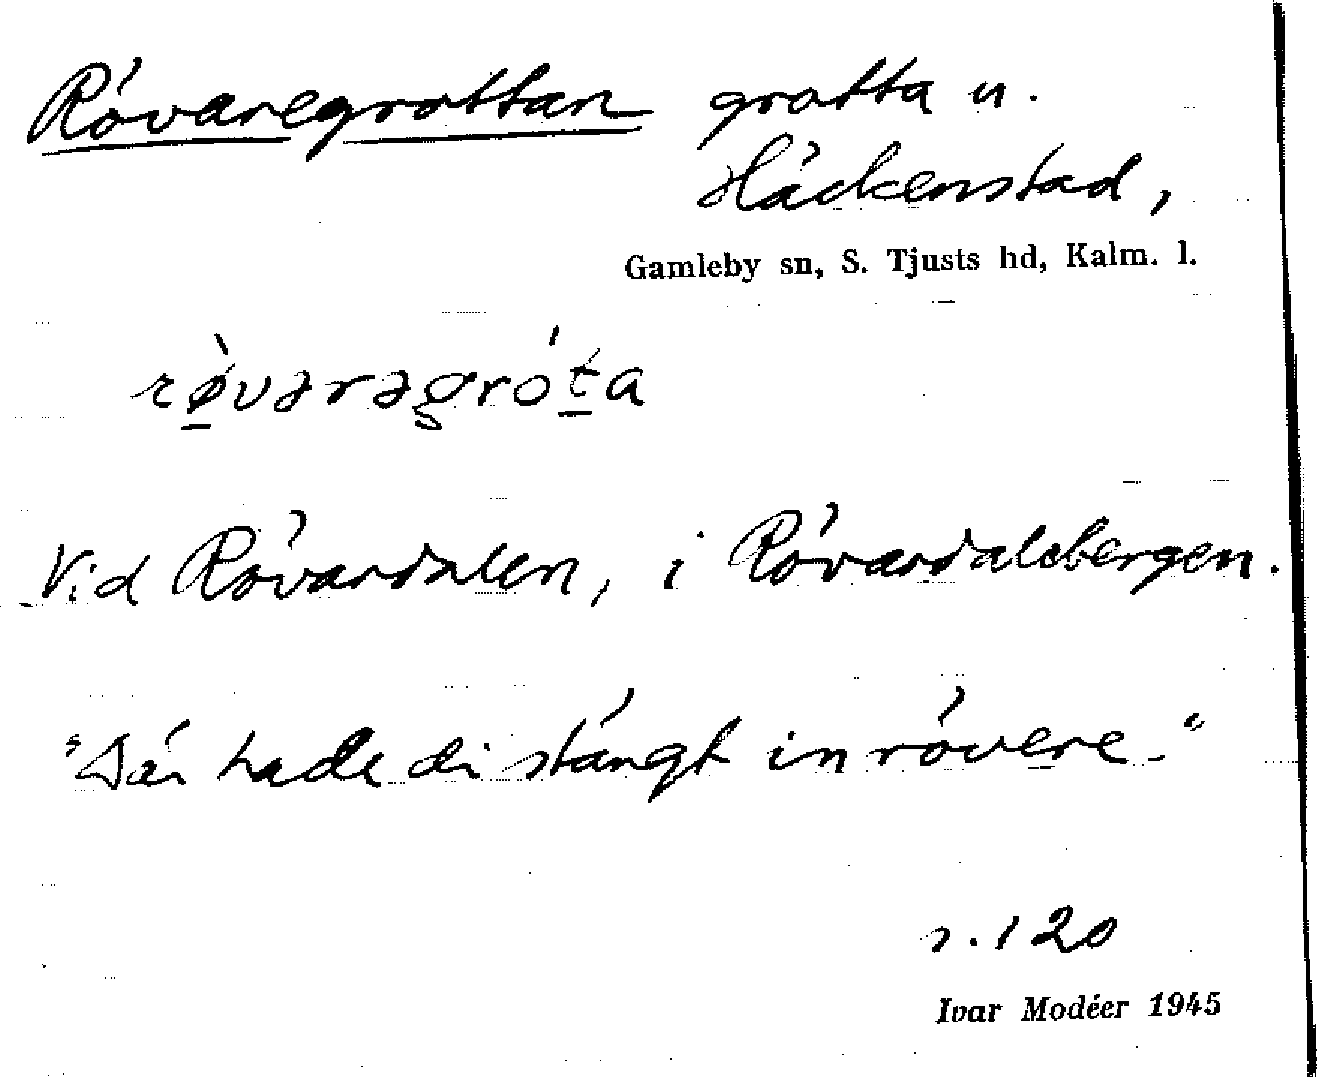 Rövaregrottan grotta u.
Häckenstad,
Gamleby sn, S. Tjusts hd, Kalm. l.
rø̱̀vərəgró́ṯa
Vid Rövardalen, i Rövardalsbergen.
"Där hade di stängt in rövere."
s. 120
Ivar Modéer 1945